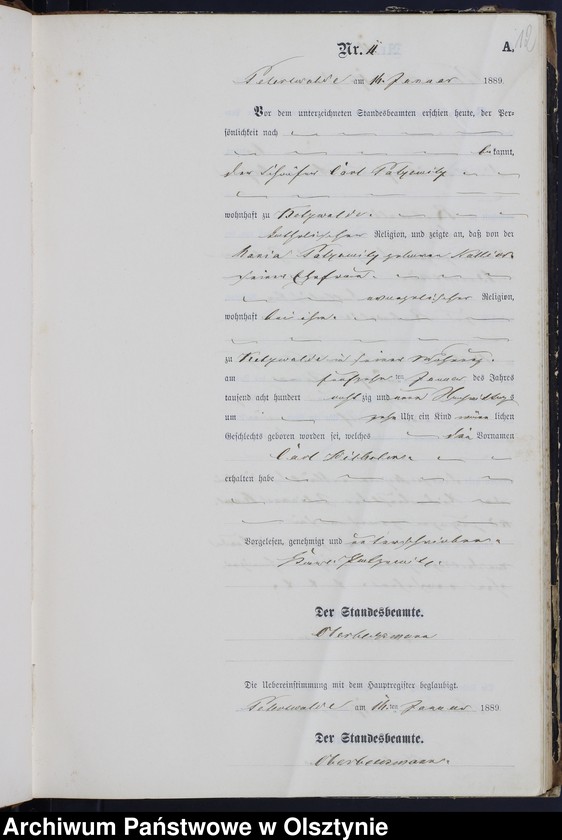 12
Nr. 11
A.
am 16. Januar 1889.
Vor dem unterzeichneten Standesbeamten erschien heute, der Per-
sönlichkeit nach
bekannt,
der Schäfer Carl
wohnhaft zu
katholischer Religion, und zeigte an, daß von der
Maria geborene
seiner Ehefrau
evangelischer Religion,
wohnhaft bei ihm
zu in seiner Wohnung
am ten Januar des Jahres
tausend acht hundert achtzig und neun Nachmittags
um Uhr ein Kind männlichen
Geschlechts geboren worden sei, welches die Vornamen
Carl Wilhelm
erhalten habe
Vorgelesen, genehmigt und unterschrieben
Der Standesbeamte.
Die Uebereinstimmung mit dem Hauptregister beglaubigt.
am 16 ten Januar 1889
Der Standesbeamte.
Archiwum Państwowe w Olsztynie